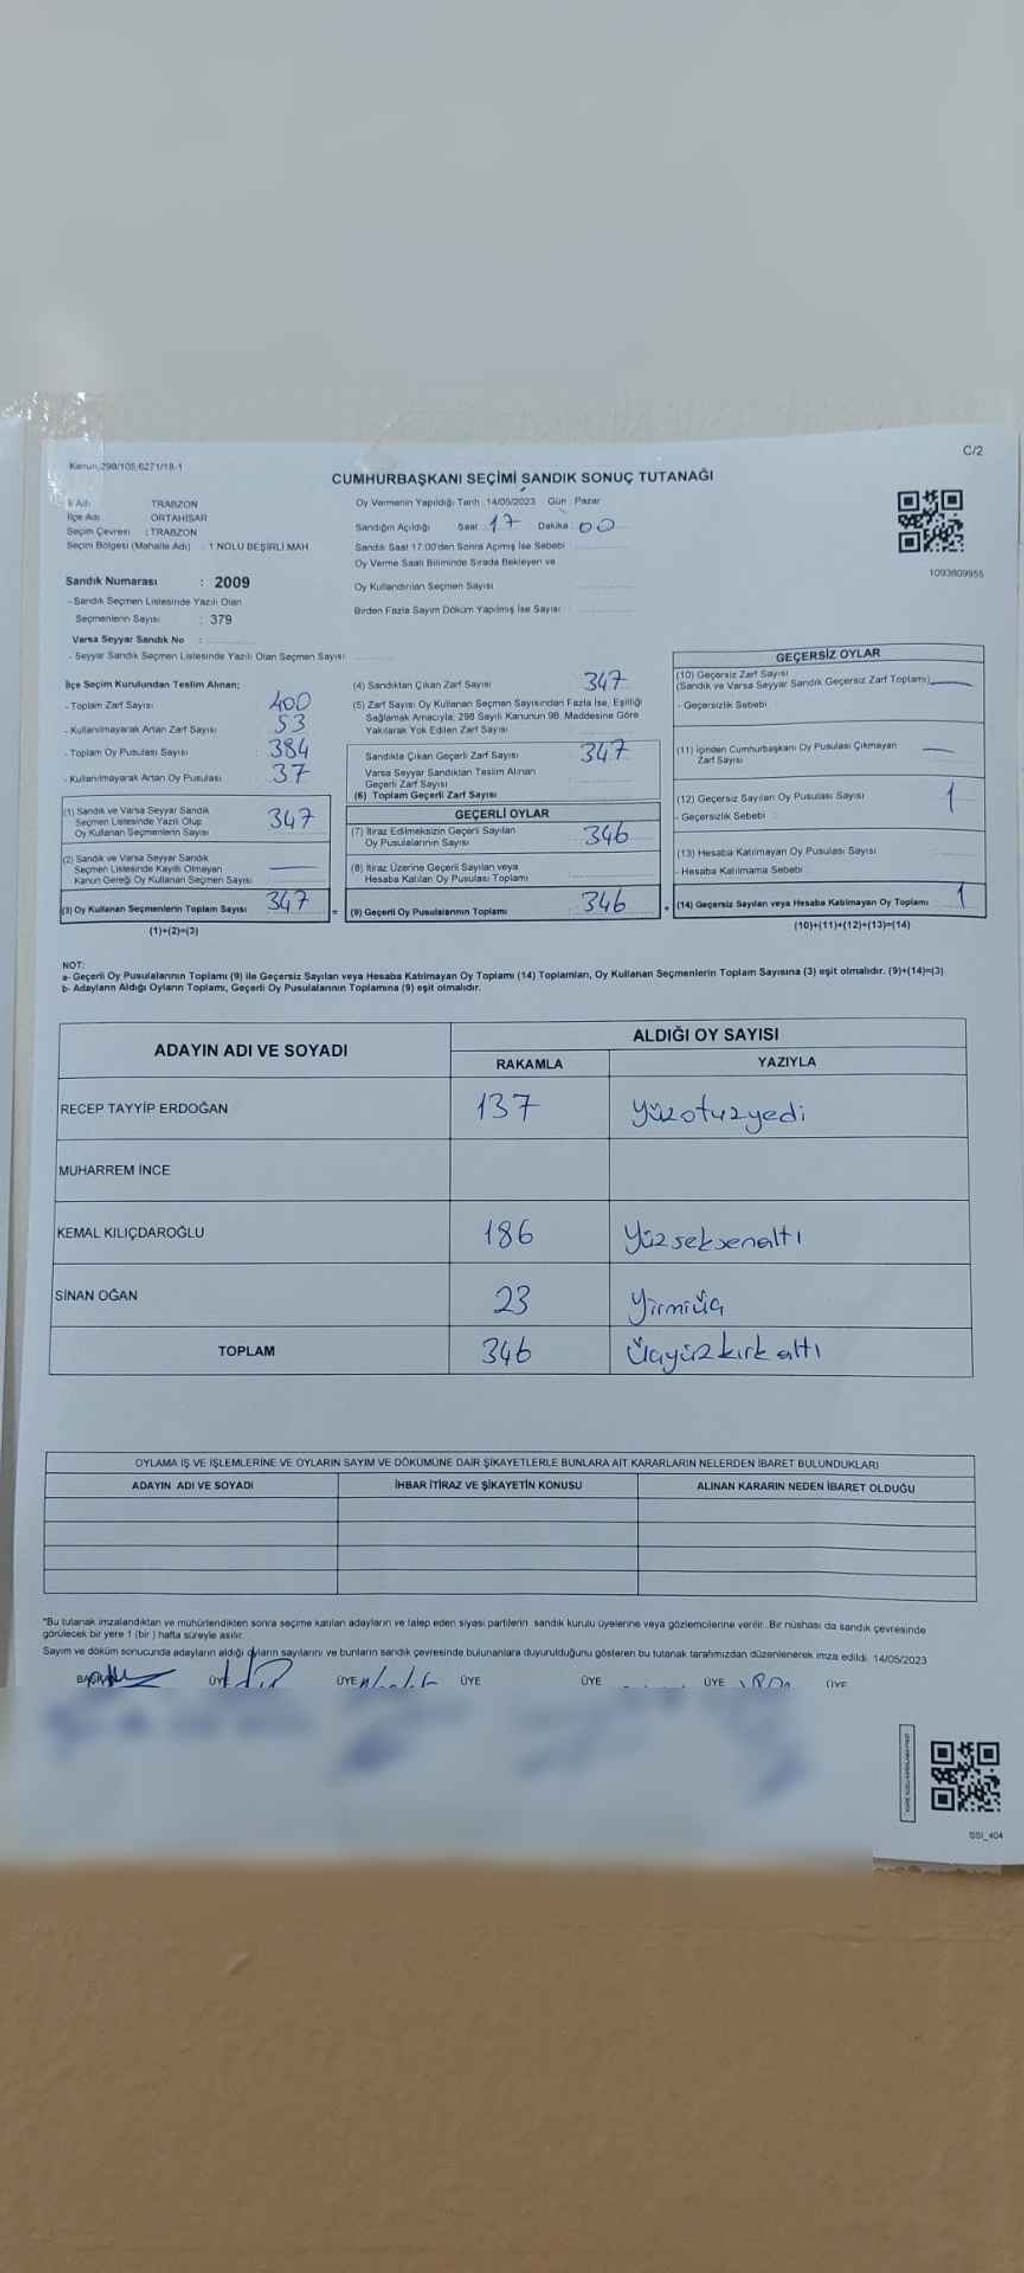 Kanun 298/105,6271/18-1
C/2
CUMHURBAŞKANI SEÇİMİ SANDIK SONUÇ TUTANAĞI
İl Adı TRABZON
İlçe Adı ORTAHİSAR
Seçim Çevresi : TRABZON
Seçim Bölgesi (Mahalle Adı) : 1 NOLU BEŞİRLİ MAH.
Oy Vermenin Yapıldığı Tarih :14/05/2023 Gün : Pazar
Sandığın Açıldığı Saat 17 Dakika : 00
Sandık Saat 17.00'den Sonra Açımış İse Sebebi
Oy Verme Saati Bitiminde Sırada Bekleyen ve
Oy Kullandırılan Seçmen Sayısı
Birden Fazla Sayım Döküm Yapılmış İse Sayısı
1093809955
Sandık Numarası : 2009
- Sandık Seçmen Listesinde Yazılı Olan
Seçmenlerin Sayısı : 379
Varsa Seyyar Sandık No :
- Seyyar Sandık Seçmen Listesinde Yazılı Olan Seçmen Sayısı
İlçe Seçim Kurulundan Teslim Alınan;
- Toplam Zarf Sayısı 400
- Kullanılmayarak Artan Zarf Sayısı 53
- Toplam Oy Pusulası Sayısı 384
- Kullanılmayarak Artan Oy Pusulası 37
(1) Sandık ve Varsa Seyyar Sandık
Seçmen Listesinde Yazılı Olup
Oy Kullanan Seçmenlerin Sayısı 347
(2) Sandık ve Varsa Seyyar Sandık
Seçmen Listesinde Kayıtlı Olmayan
Kanun Gereği Oy Kullanan Seçmen Sayısı —
(3) Oy Kullanan Seçmenlerin Toplam Sayısı 347
(1)+(2)=(3)
(4) Sandıktan Çıkan Zarf Sayısı 347
(5) Zarf Sayısı Oy Kullanan Seçmen Sayısından Fazla İse, Eşitliği
Sağlamak Amacıyla, 298 Sayılı Kanunun 98. Maddesine Göre
Yakılarak Yok Edilen Zarf Sayısı
Sandıkta Çıkan Geçerli Zarf Sayısı 347
Varsa Seyyar Sandıktan Teslim Alınan
Geçerli Zarf Sayısı
(6) Toplam Geçerli Zarf Sayısı
GEÇERLİ OYLAR
(7) İtiraz Edilmeksizin Geçerli Sayılan
Oy Pusulalarının Sayısı 346
(8) İtiraz Üzerine Geçerli Sayılan veya
Hesaba Katılan Oy Pusulası Toplamı
= (9) Geçerli Oy Pusulalarının Toplamı 346
GEÇERSİZ OYLAR
(10) Geçersiz Zarf Sayısı
(Sandık ve Varsa Seyyar Sandık Geçersiz Zarf Toplamı) —
- Geçersizlik Sebebi
(11) İçinden Cumhurbaşkanı Oy Pusulası Çıkmayan
Zarf Sayısı —
(12) Geçersiz Sayılan Oy Pusulası Sayısı 1
- Geçersizlik Sebebi :
(13) Hesaba Katılmayan Oy Pusulası Sayısı
- Hesaba Katılmama Sebebi
+ (14) Geçersiz Sayılan veya Hesaba Katılmayan Oy Toplamı 1
(10)+(11)+(12)+(13)=(14)
NOT:
a- Geçerli Oy Pusulalarının Toplamı (9) ile Geçersiz Sayılan veya Hesaba Katılmayan Oy Toplamı (14) Toplamları, Oy Kullanan Seçmenlerin Toplam Sayısına (3) eşit olmalıdır. (9)+(14)=(3)
b- Adayların Aldığı Oyların Toplamı, Geçerli Oy Pusulalarının Toplamına (9) eşit olmalıdır.
ADAYIN ADI VE SOYADI
ALDIĞI OY SAYISI
RAKAMLA YAZIYLA
RECEP TAYYİP ERDOĞAN 137 Yüzotuzyedi
MUHARREM İNCE
KEMAL KILIÇDAROĞLU 186 Yüzseksenaltı
SİNAN OĞAN 23 Yirmiüç
TOPLAM 346 Üçyüzkırkaltı
OYLAMA İŞ VE İŞLEMLERİNE VE OYLARIN SAYIM VE DÖKÜMÜNE DAİR ŞİKAYETLERLE BUNLARA AİT KARARLARIN NELERDEN İBARET BULUNDUKLARI
ADAYIN ADI VE SOYADI İHBAR İTİRAZ VE ŞİKAYETİN KONUSU ALINAN KARARIN NEDEN İBARET OLDUĞU
"Bu tutanak imzalandıktan ve mühürlendikten sonra seçime katılan adayların ve talep eden siyasi partilerin sandık kurulu üyelerine veya gözlemcilerine verilir. Bir nüshası da sandık çevresinde
görülecek bir yere 1 (bir ) hafta süreyle asılır.
Sayım ve döküm sonucunda adayların aldığı oyların sayılarını ve bunların sandık çevresinde bulunanlara duyurulduğunu gösteren bu tutanak tarafımızdan düzenlenerek imza edildi. 14/05/2023
BAŞKAN ÜYE ÜYE ÜYE ÜYE ÜYE ÜYE
SSI_404